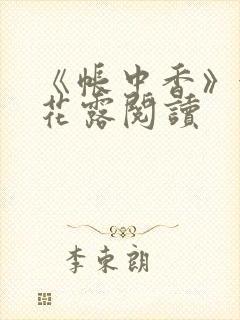 《帐中香》
花露閱讀
李束朗